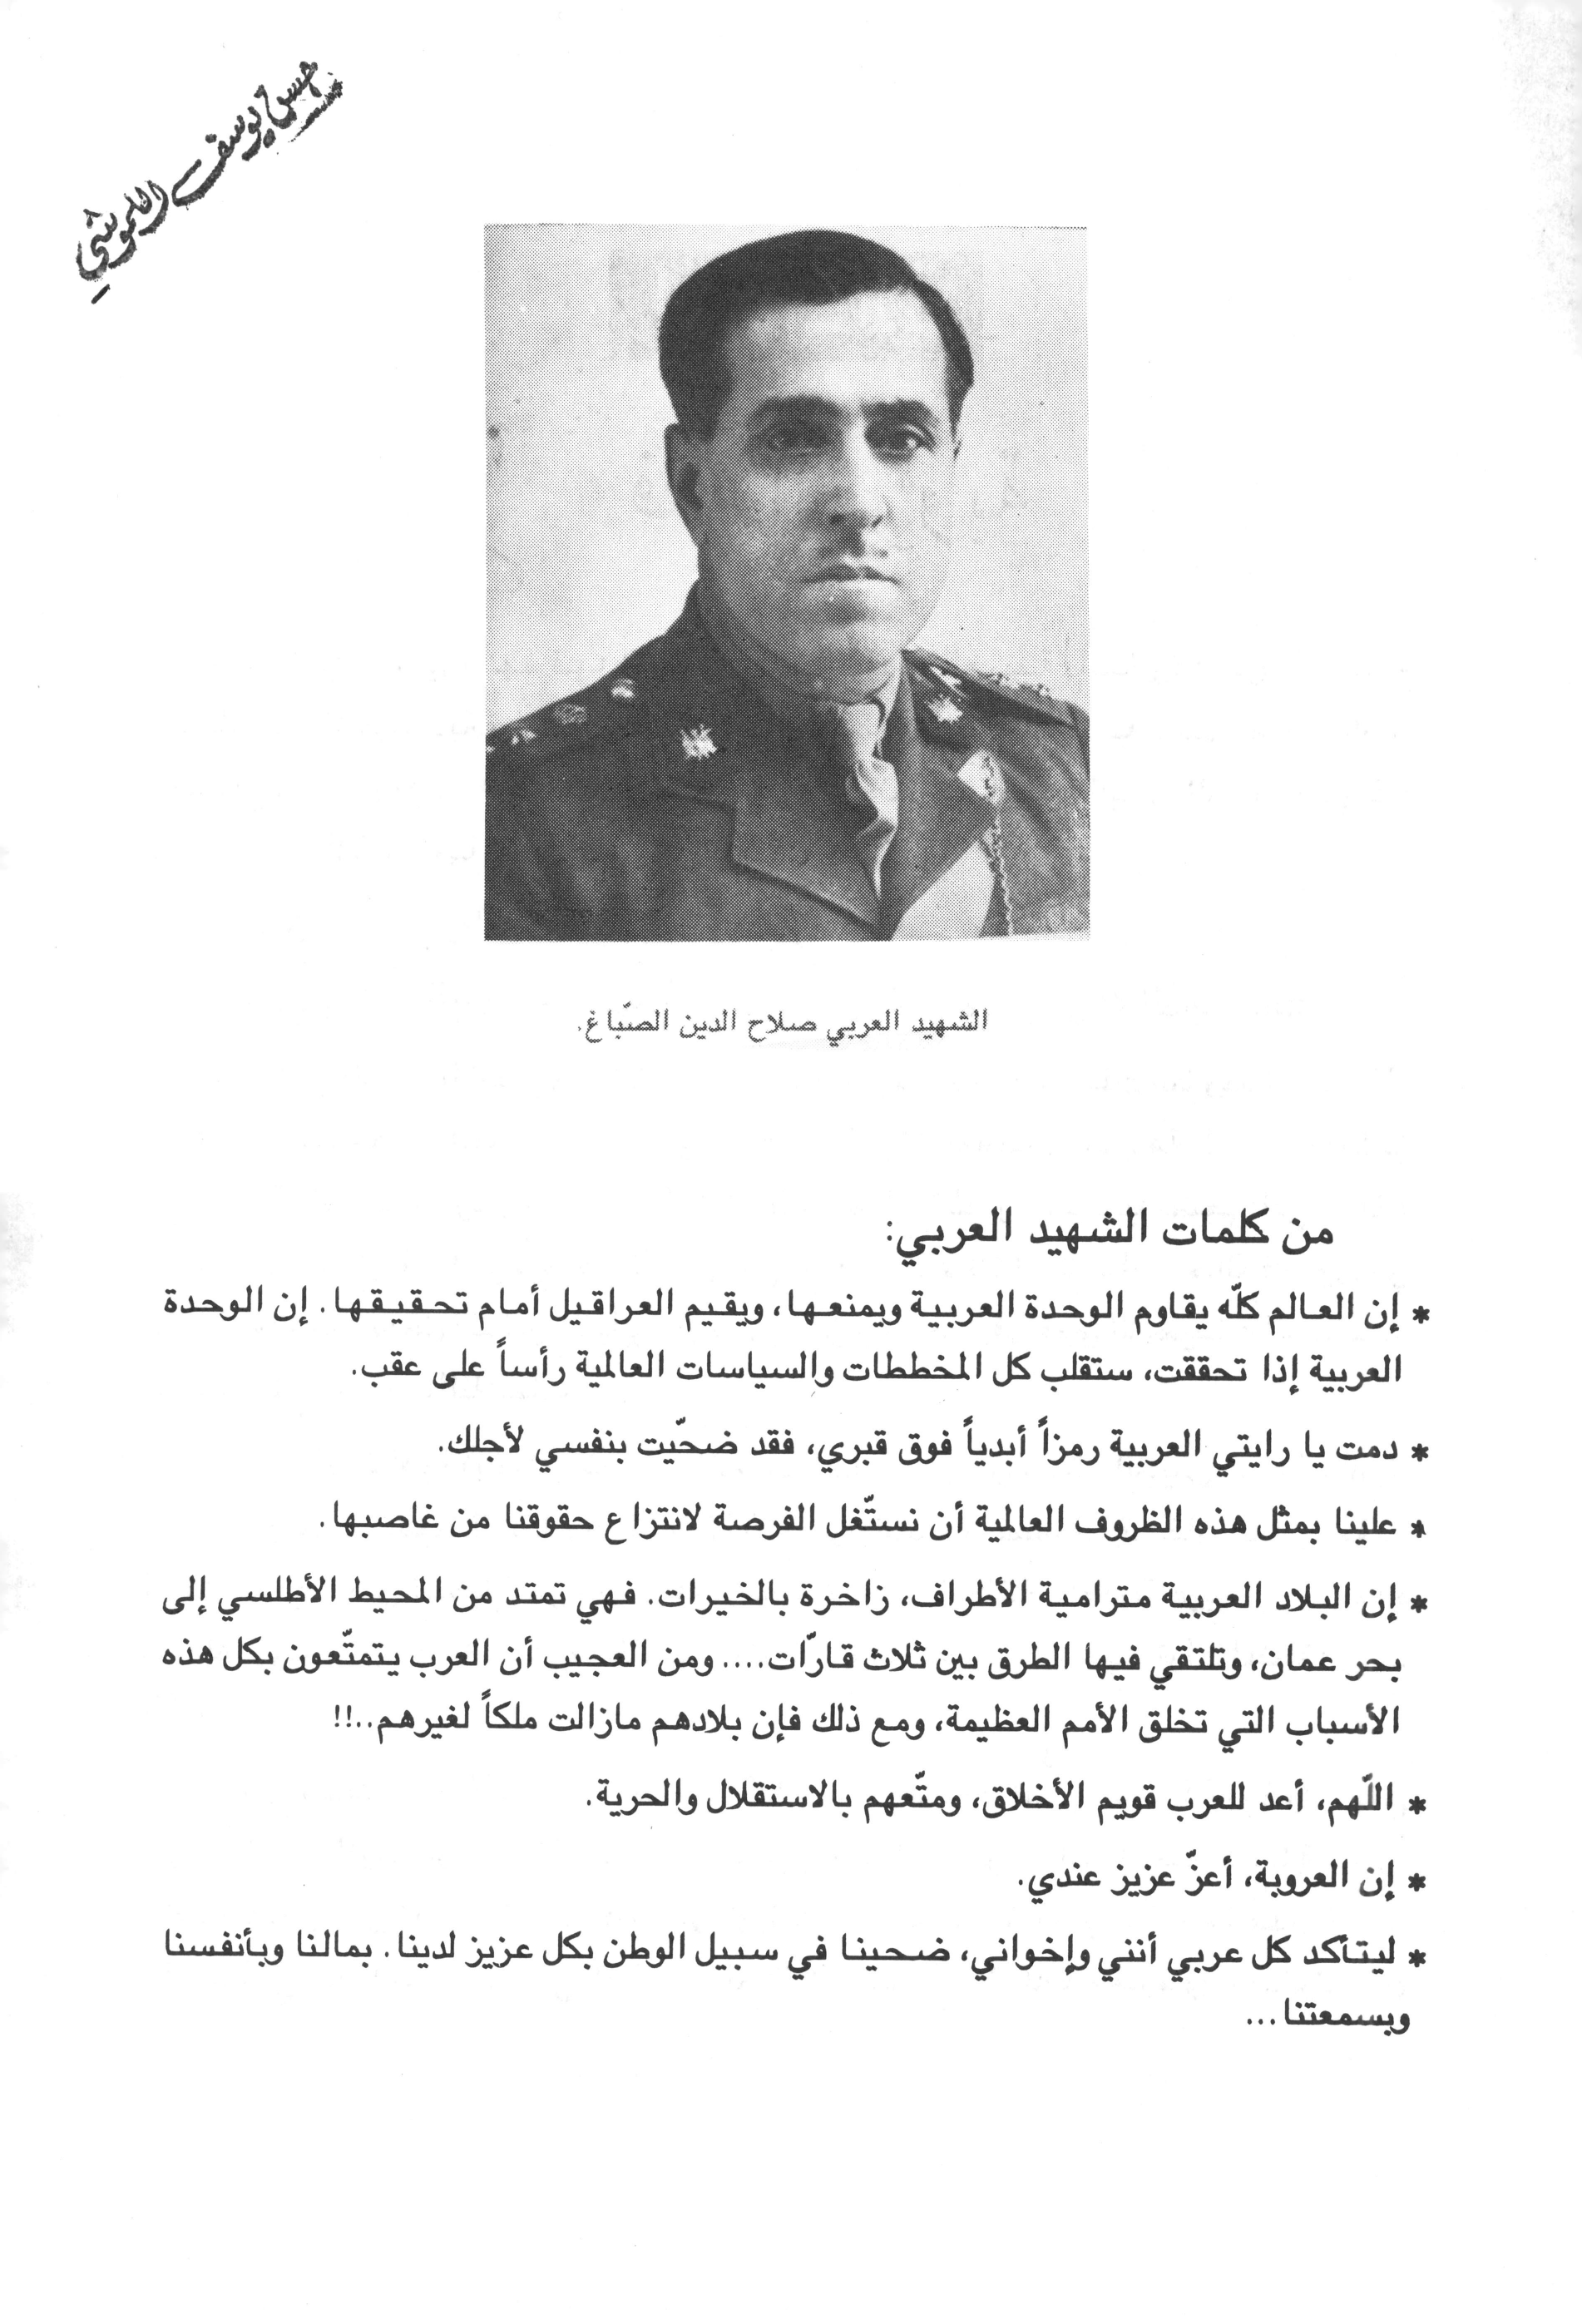 حسن يوسف اللموشي
الشهيد العربي صلاح الدين الصبّاغ.
من كلمات الشهيد العربي:
* إن العالم كلّه يقاوم الوحدة العربية ويمنعها، ويقيم العراقيل أمام تحقيقها. إن الوحدة
العربية إذا تحققت، ستقلب كل المخططات والسياسات العالمية رأساً على عقب.
* دمت يا رايتي العربية رمزاً أبدياً فوق قبري، فقد ضحّيت بنفسي لأجلك.
* علينا بمثل هذه الظروف العالمية أن نستّغل الفرصة لانتزاع حقوقنا من غاصبها.
* إن البلاد العربية مترامية الأطراف، زاخرة بالخيرات. فهي تمتد من المحيط الأطلسي إلى
بحر عمان، وتلتقي فيها الطرق بين ثلاث قارّات.... ومن العجيب أن العرب يتمتّعون بكل هذه
الأسباب التي تخلق الأمم العظيمة، ومع ذلك فإن بلادهم مازالت ملكاً لغيرهم..!!
* اللّهم، أعد للعرب قويم الأخلاق، ومتّعهم بالاستقلال والحرية.
* إن العروبة، أعزّ عزيز عندي.
* ليتأكد كل عربي أنني وإخواني، ضحينا في سبيل الوطن بكل عزيز لدينا. بمالنا وبأنفسنا
وبسمعتنا...